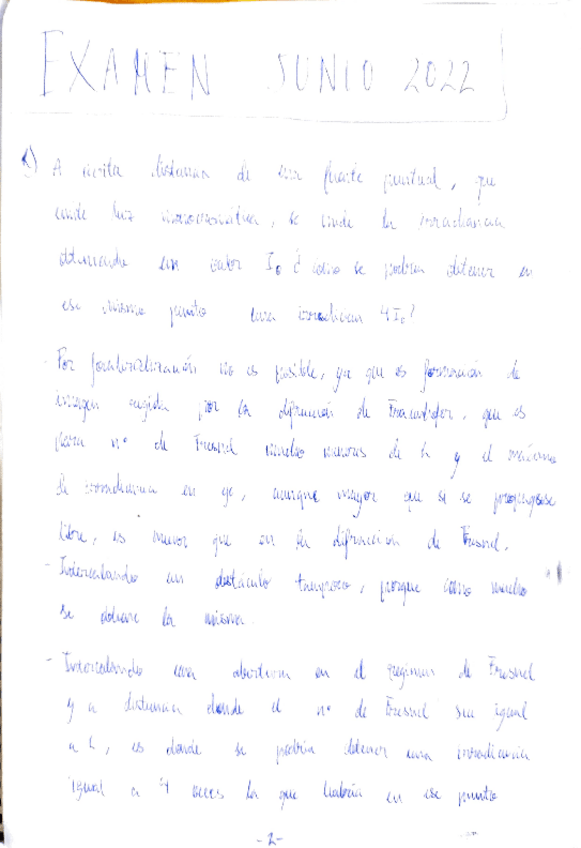 EXAMEN JUNIO 2022
A cierta distancia de una fuente puntual, que
emite luz monocromática, se mide la irradiancia
obteniendo un valor I₀ ¿ cómo se podría obtener en
ese mismo punto una irradiancia 4I₀?
- Por focalización no es posible, ya que es formación de
imagen regida por la difracción de Fraunhofer, que es
para nº de Fresnel mucho menores de 1 y el máximo
de irradiancia en eje, aunque mayor que si se propagase
libre, es menor que en la difracción de Fresnel.
- Intercalando un obstáculo tampoco, porque como mucho
se obtiene la misma.
- Intercalando una abertura en el régimen de Fresnel
y a distancia donde el nº de Fresnel sea igual
a 1, es donde se podría obtener una irradiancia
igual a 4 veces la que habría en ese punto
-2-